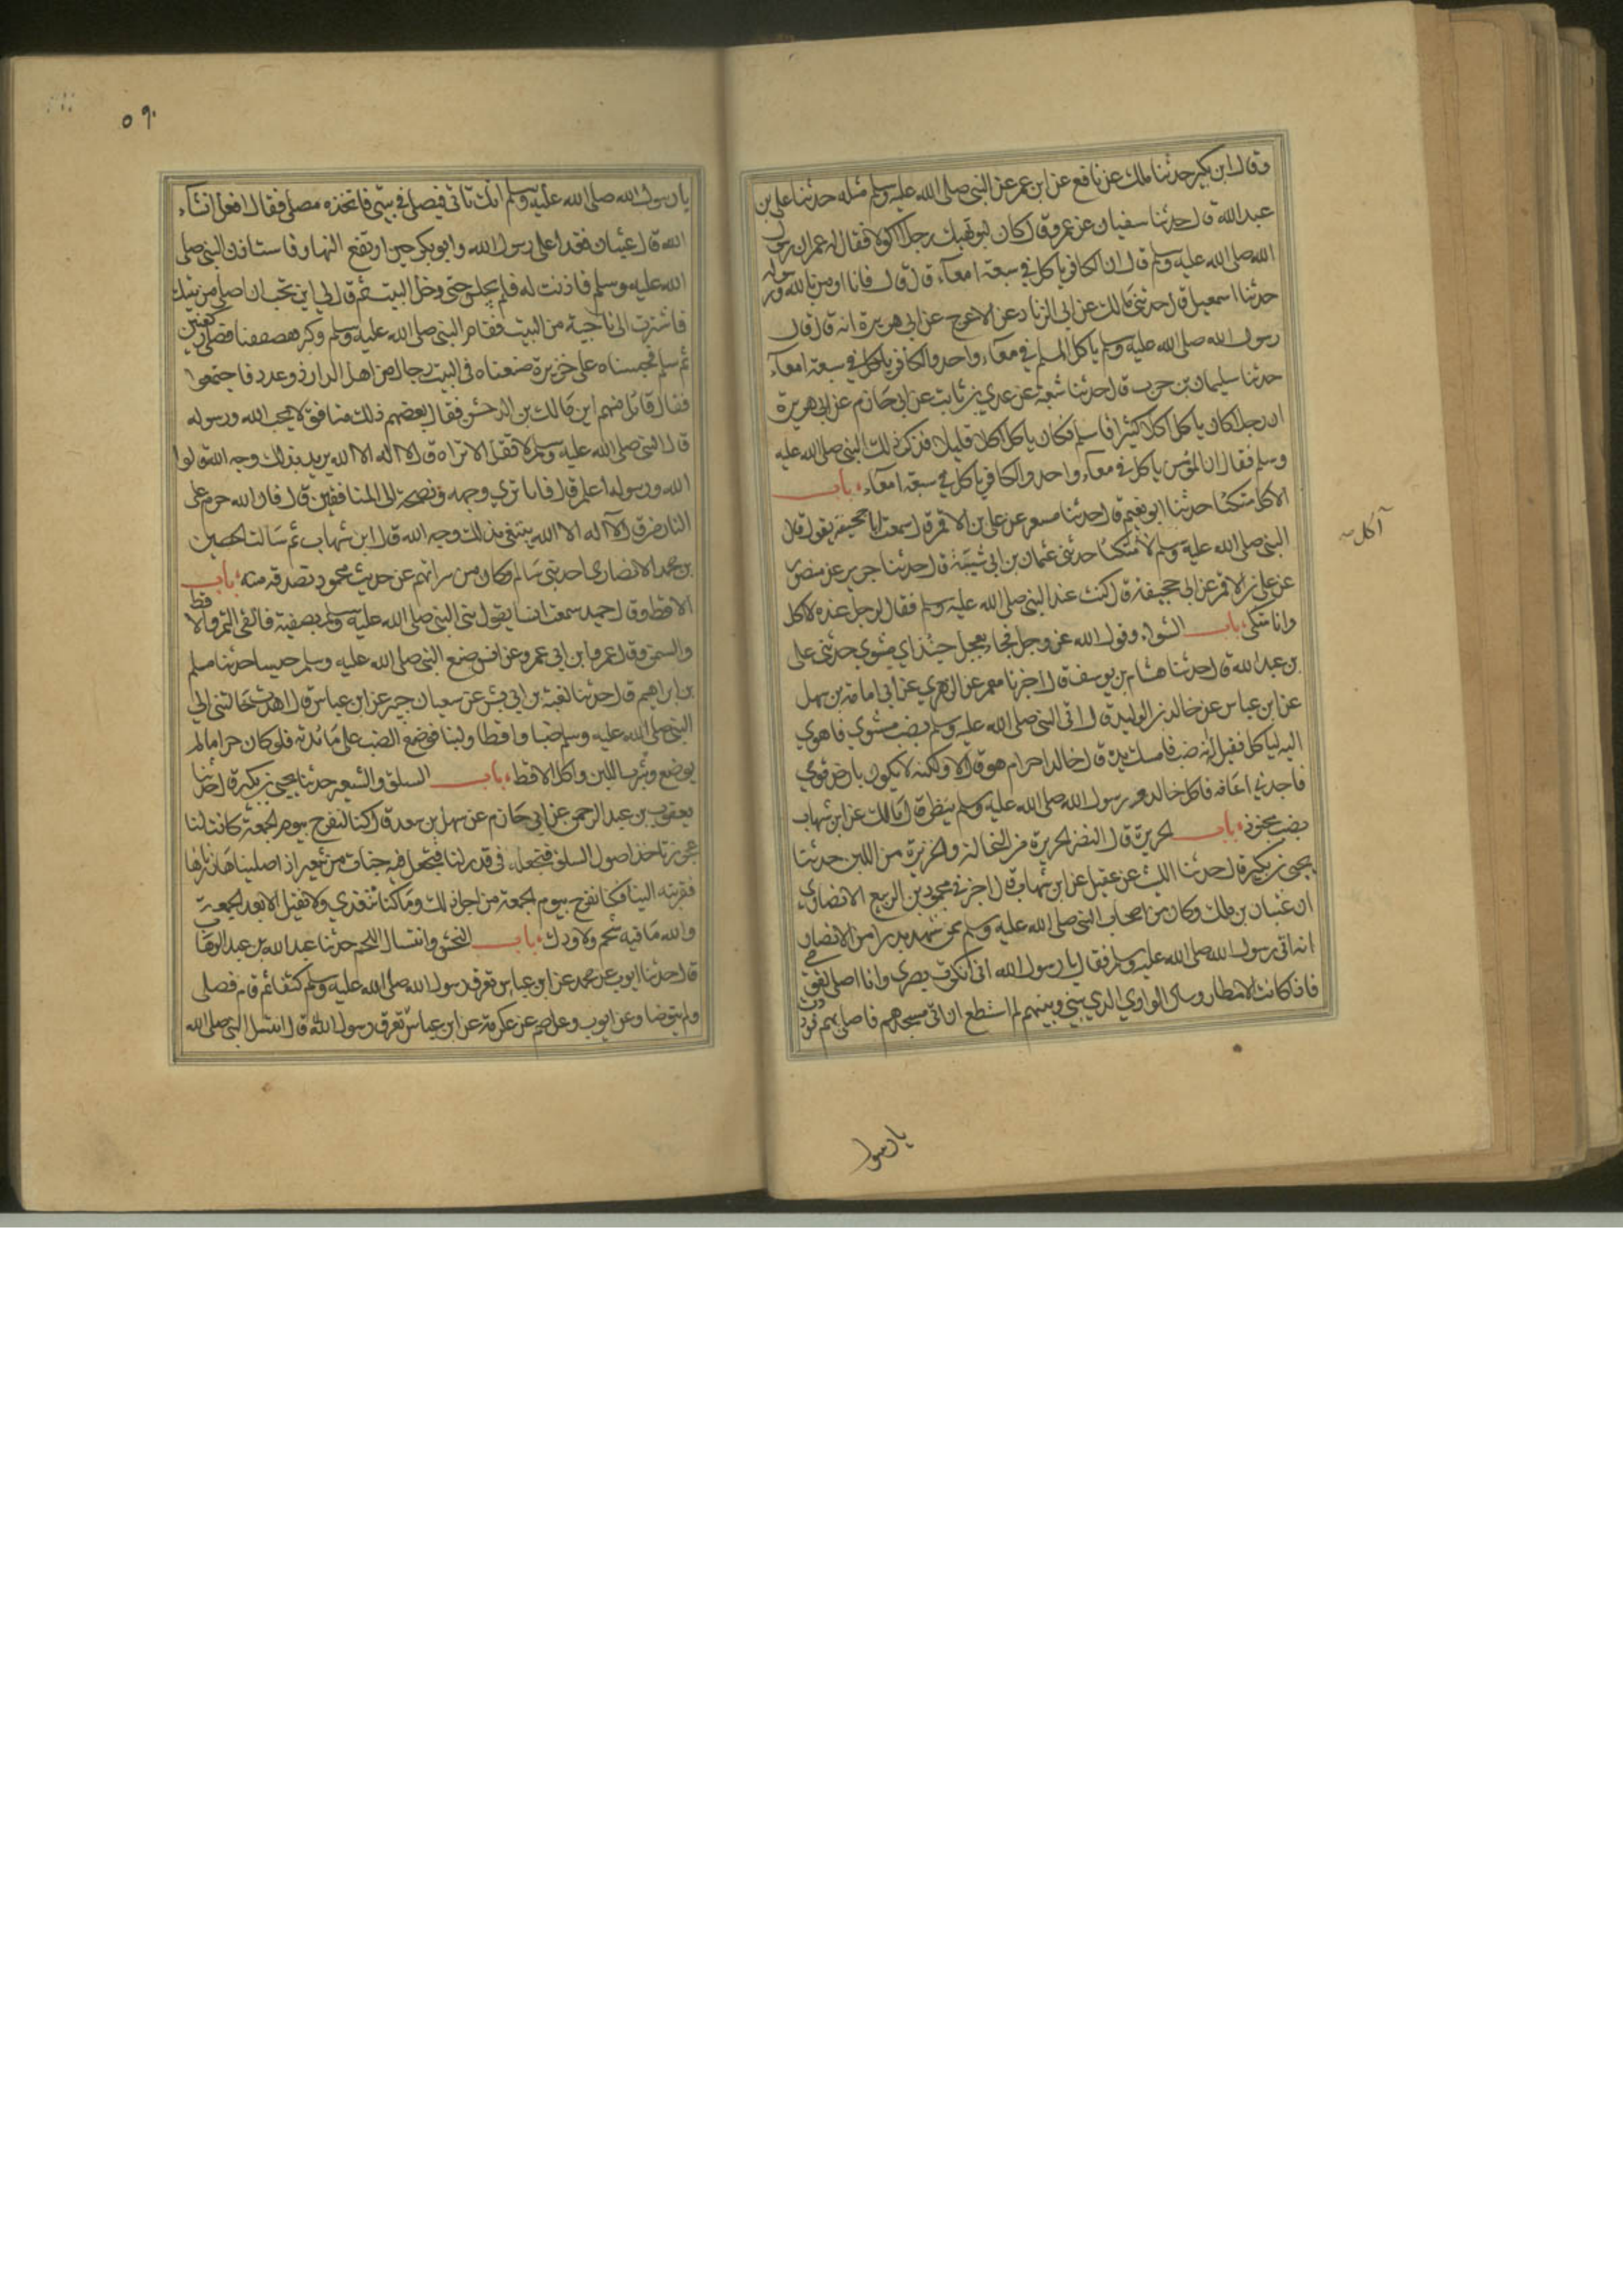 وقال ابن بكير حدثنا ملك عن نافع عن ابن عمر عن النبي صلى الله عليه وسلم مثله حدثنا علي بن
عبد الله قال حدثنا سفيان عن عمرو قال كان ابو نهيك رجلا اكولا فقال له ابن عمر ان رسول
الله صلى الله عليه وسلم قال ان الكافر ياكل في سبعة امعآء قال قال فانا اومن بالله ورسوله
حدثنا اسمعيل قال حدثني مالك عن ابي الزناد عن الاعرج عن ابي هريرة انه قال قال
رسول الله صلى الله عليه وسلم ياكل المسلم في معآء واحد والكافر ياكل في سبعة امعآء
حدثنا سليمان بن حرب قال حدثنا شعبة عن عدي بن ثابت عن ابي حازم عن ابي هريرة
ان رجلا كان ياكل اكلا كثيرا فاسلم فكان ياكل اكلا قليلا فذكر ذلك النبي صلى الله عليه
وسلم فقال ان المؤمن ياكل في معآء واحد والكافر ياكل في سبعة امعآء باب
الاكل متكئا حدثنا ابو نعيم قال حدثنا مسعر عن علي بن الاقمر قال سمعت ابا جحيفة يقول قال
النبي صلى الله عليه وسلم لا متكئا حدثني عثمان بن ابي شيبة قال حدثنا جرير عن منصور
عن علي بن الاقمر عن ابي جحيفة قال كنت عند النبي صلى الله عليه وسلم فقال لرجل عنده لا اكل
وانا متكي باب الشواء وقول الله عز وجل فجاء بعجل حنيذ اي مشوي حدثني علي
بن عبد الله قال حدثنا هشام بن يوسف قال اخبرنا معمر عن الزهري عن ابي امامة بن سهل
عن ابن عباس عن خالد بن الوليد قال اتى النبي صلى الله عليه وسلم بضب مشوي فاهوي
اليه لياكل فقيل انه ضب فامسك يده قال خالد احرام هو قال لا ولكنه لا يكون بارض قومي
فاجدني اعافه فاكل خالد ورسول الله صلى الله عليه وسلم ينظر قال مالك عن ابن شهاب
بضب محنوذ باب الخزيرة قال النضر الخزيرة من النخالة والحريرة من اللبن حدثنا
يحيى بن بكير قال حدثنا الليث عن عقيل عن ابن شهاب قال اخبرني محمود بن الربيع الانصاري
ان عتبان بن ملك وكان من اصحاب النبي صلى الله عليه وسلم ممن شهد بدرا من الانصار
انه اتى رسول الله صلى الله عليه وسلم فقال يا رسول الله اني انكرت بصري وانا اصلي لقومي
فاذا كانت الامطار وسال الوادي الذي بيني وبينهم لم استطع ان اتي مسجدهم فاصلي بهم فوددت
آكل
يا رسول
٥٩٠
يا رسول الله صلى الله عليه وسلم انك تاتي فيصلي في بيتي فاتخذه مصلى فقال افعل انشآء
الله قال عتبان فغدا علي رسول الله وابو بكر حين ارتفع النهار فاستاذن النبي صلى
الله عليه وسلم فاذنت له فلم يجلس حتى دخل البيت ثم قال لي اين تحب ان اصلي من بيتك
فاشرت الى ناحية من البيت فقام النبي صلى الله عليه وسلم وكبر فصففنا فصلى ركعتين
ثم سلم فحبسناه على خزيرة صنعناه في البيت رجال من اهل الدار ذو وعدد فاجتمعوا
فقال قائل منهم اين مالك بن الدخشن فقال بعضهم ذلك منافق لا يحب الله ورسوله
قال النبي صلى الله عليه وسلم لا تقل الا تراه قال لا اله الا الله يريد بذلك وجه الله قالوا
الله ورسوله اعلم قال فانا نري وجهه ونصيحته الى المنافقين قال فان الله حرم على
النار من قال لا اله الا الله يبتغي بذلك وجه الله قال ابن شهاب ثم سالت الحصين
بن محمد الانصاري احد بني سالم وكان من سراتهم عن حديث محمود فصدقه منه باب
الاقط وقال حميد سمعت انسا يقول بنى النبي صلى الله عليه وسلم بصفية فالقى التمر والاقط
والسمن وقال عمرو ابن ابي عمرو عن انس صنع النبي صلى الله عليه وسلم حيسا حدثنا مسلم
بن ابراهيم قال حدثنا شعبة بن ابي بشر عن سعيد بن جبير عن ابن عباس قال اهدت خالتي الى
النبي صلى الله عليه وسلم ضبا واقطا ولبنا فوضع الضب على مائدته فلو كان حراما لم
يوضع وشرب اللبن واكل الاقط باب السلق والشعير حدثنا يحيى بن بكير قال حدثنا
يعقوب بن عبد الرحمن عن ابي حازم عن سهل بن سعد قال كنا لنفرح بيوم الجمعة كانت لنا
عجوز تاخذ اصول السلق فتجعله في قدر لنا فتجعل فيه حبات من شعير اذا صلينا زرناها
فقربته الينا فكنا نفرح بيوم الجمعة من اجل ذلك وما كنا نتغدي ولا نقيل الا بعد الجمعة
والله ما فيه شحم ولا ودك باب النهش وانتشال اللحم حدثنا عبد الله بن عبد الوهاب
قال حدثنا ايوب عن محمد عن ابن عباس تعرق رسول الله صلى الله عليه وسلم كتفا ثم قام فصلى
ولم يتوضا وعن ايوب وعاصم عن عكرمة عن ابن عباس تعرق رسول الله قال انتشل النبي صلى الله